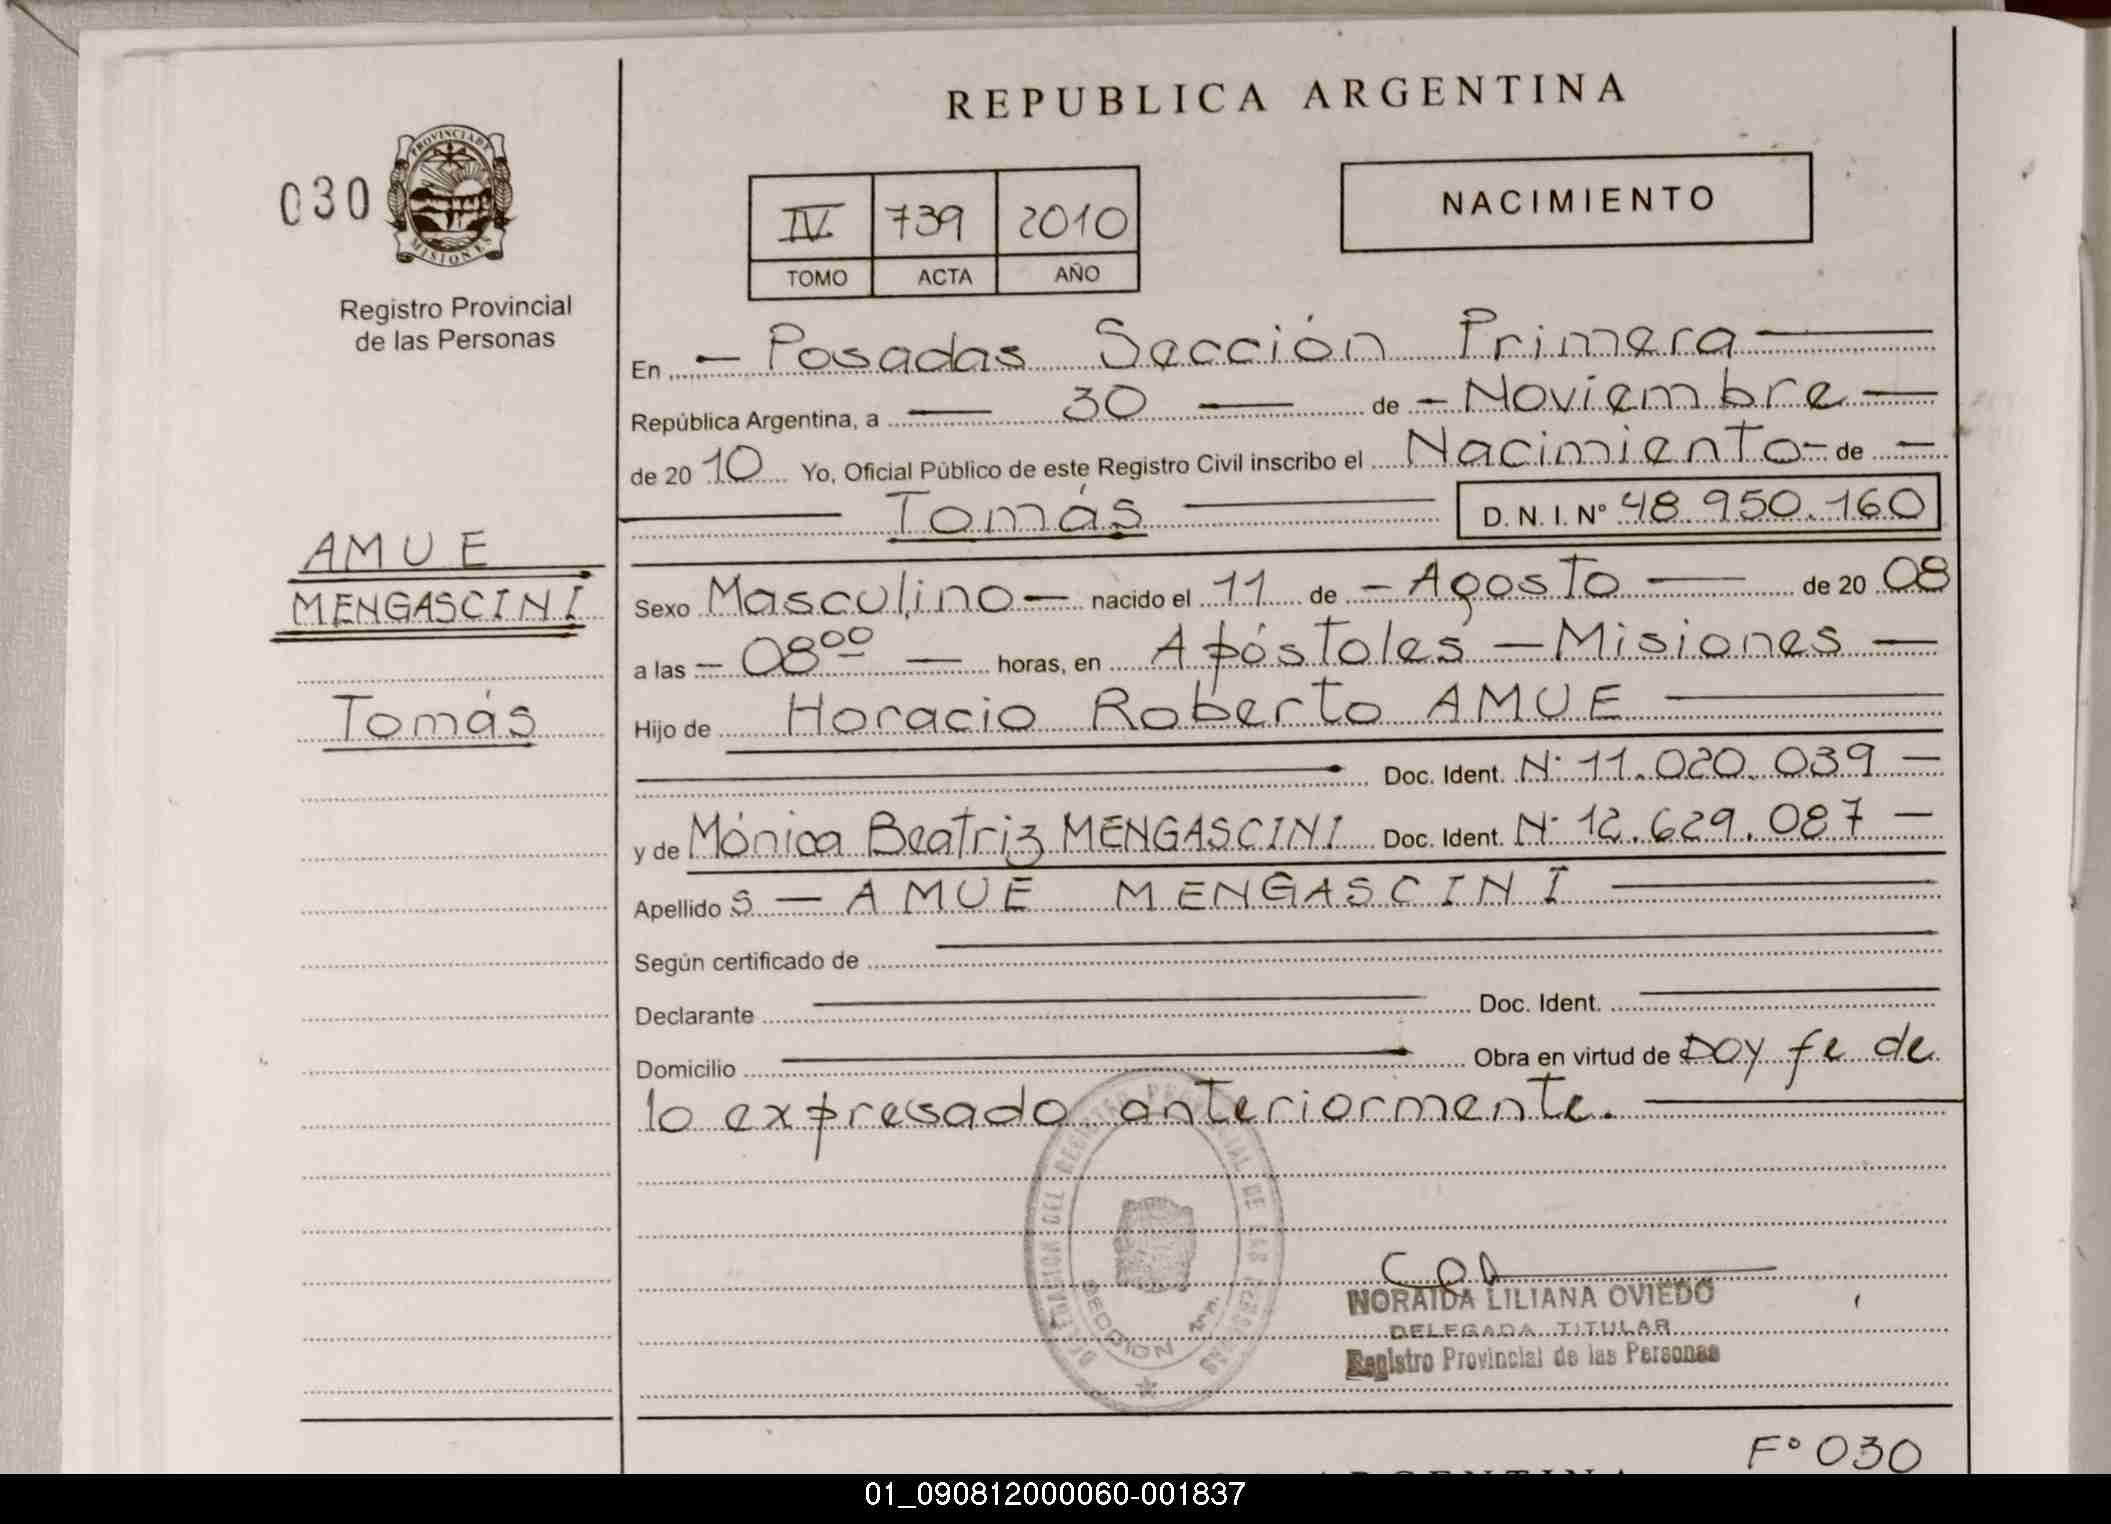 REPUBLICA ARGENTINA
030
PROVINCIA DE
MISIONES
Registro Provincial
de las Personas
IV 739 2010
TOMO ACTA AÑO
NACIMIENTO
En – Posadas Sección Primera —
República Argentina, a — 30 — de – Noviembre —
de 20 10 Yo, Oficial Público de este Registro Civil inscribo el Nacimiento – de —
— Tomás — D. N. I. N° 48.950.160
AMUE
MENGASCINI
Tomás
Sexo Masculino — nacido el 11 de – Agosto — de 20 08
a las – 08⁰⁰ — horas, en Apóstoles — Misiones —
Hijo de Horacio Roberto AMUE —
Doc. Ident. N° 11.020.039 —
y de Mónica Beatriz MENGASCINI Doc. Ident. N° 12.629.087 —
Apellido s — AMUE MENGASCINI —
Según certificado de —
Declarante — Doc. Ident. —
Domicilio — Obra en virtud de Doy fe de
lo expresado anteriormente. —
DELEGACION DEL REGISTRO PROVINCIAL DE LAS PERSONAS
SECCION 1ra.
NORAIDA LILIANA OVIEDO
DELEGADA TITULAR
Registro Provincial de las Personas
F° 030
01_090812000060-001837